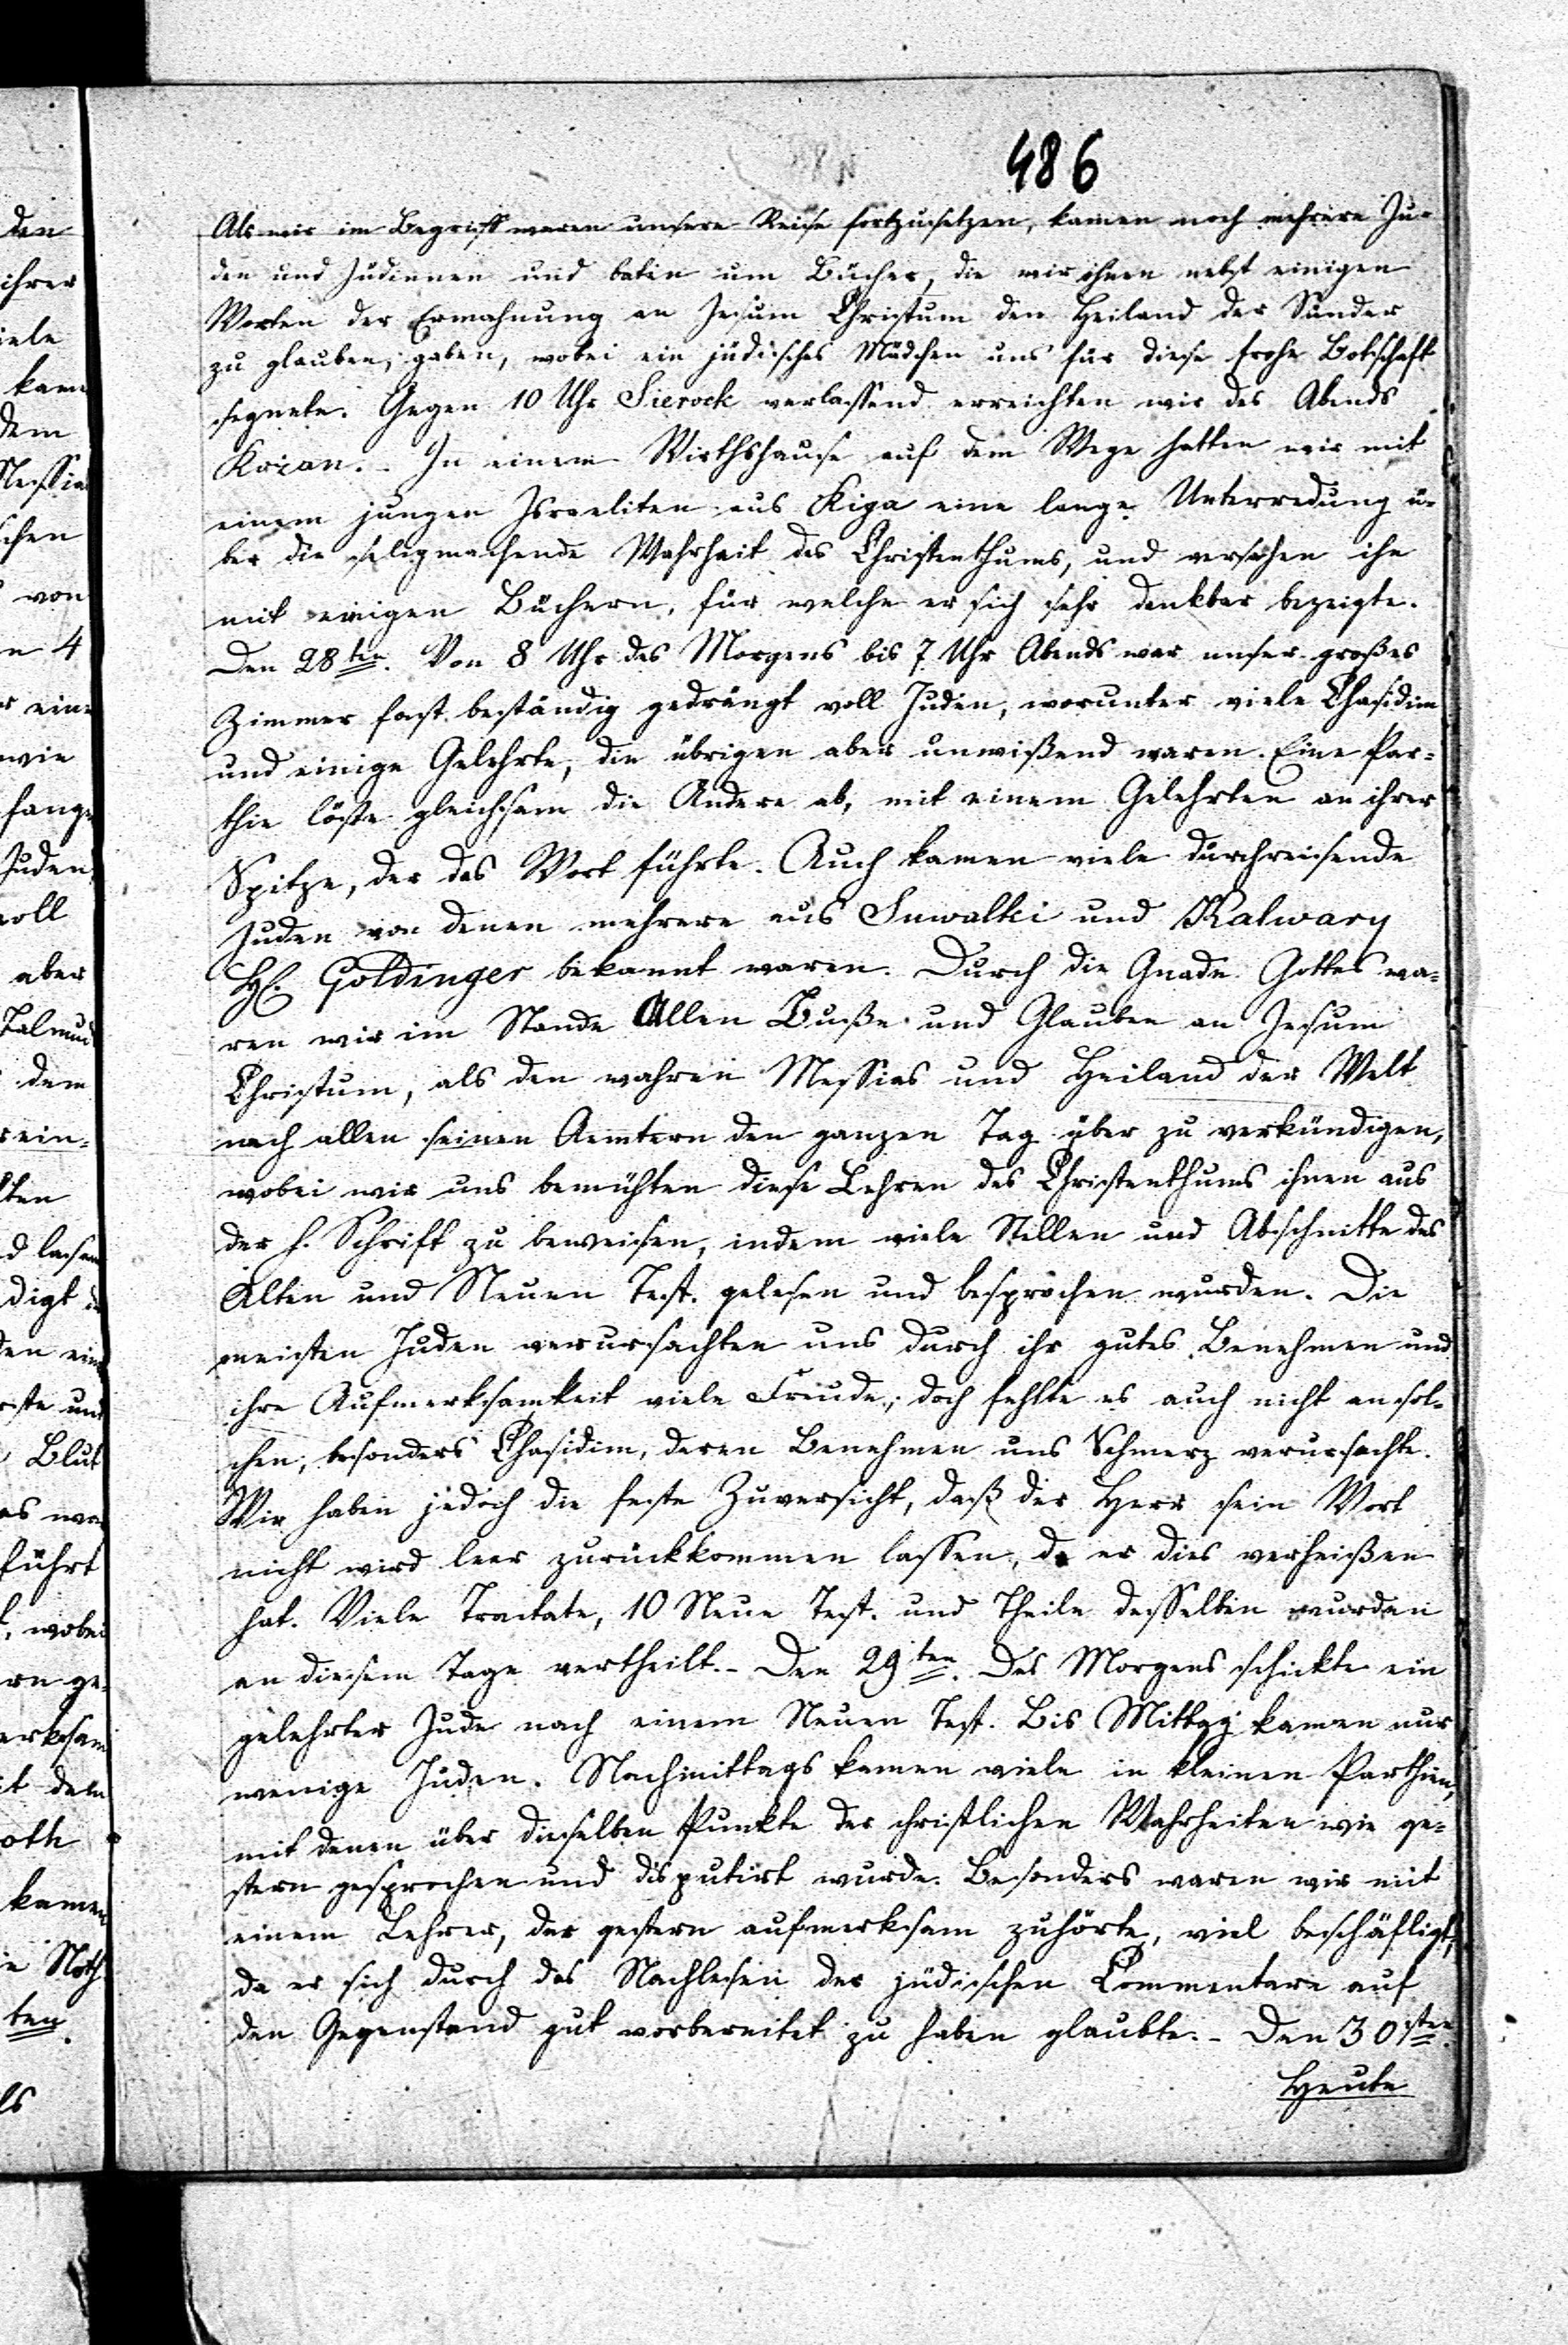 486
Als wir im Begriff waren unsere Reise fortzusetzen, kamen noch mehrere Ju-
den und Jüdinnen und baten um Bücher, die wir ihnen nebst einigen
Worten der Ermahnung an Jesum Christum den Heiland der Sünder
zu glauben, gaben, wobei ein jüdisches Mädchen uns für diese frohe Botschaft
segnete. Gegen 10 Uhr Sierock verlassend erreichten wir des Abends
Rożan. - In einem Wirthshause auf dem Wege hatten wir mit
einem jungen Israeliten aus Riga eine lange Unterredung ü-
ber die seligmachende Wahrheit des Christenthums, und versahen ihn
mit einigen Büchern, für welche er sich sehr dankbar bezeigte.
Den 28ten. Von 8 Uhr des Morgens bis 7 Uhr Abends war unser großes
Zimmer fast beständig gedrängt voll Juden, worunter viele Chasidim
und einige Gelehrte, die übrigen aber unwißend waren. Eine Par-
thie löste gleichsam die Andere ab, mit einem Gelehrten an ihrer
Spitze, der das Wort führte. Auch kamen viele durchreisende
Juden von denen mehrere aus Suwalki und Kalwary
H. Goldinger bekannt waren. Durch die Gnade Gottes wa-
ren wir im Stande Allen Buße und Glauben an Jesum
Christum, als den wahren Messias und Heiland der Welt
nach allen seinen Aemtern den ganzen Tag über zu verkündigen,
wobei wir uns bemühten diese Lehren des Christenthums ihnen aus
der h. Schrift zu beweisen, indem viele Stellen und Abschnitte des
Alten und Neuen Test. gelesen und besprochen wurden. Die
meisten Juden verursachten uns durch ihr gutes Benehmen und
ihre Aufmerksamkeit viele Freude; doch fehlte es auch nicht an sol-
chen, besonders Chasidim, deren Benehmen uns Schmerz verursachte.
Wir haben jedoch die feste Zuversicht, daß der Herr sein Wort
nicht wird leer zurückkommen lassen, da er dies verheißen
hat. Viele Tractate, 10 Neue Test. und Theile desselben wurden
an diesem Tage vertheilt. - Den 29ten. Des Morgens schickte ein
gelehrter Jude nach einem Neuen Test. Bis Mittag kamen nur
wenige Juden. Nachmittags kamen viele in kleinen Parthien,
mit denen über dieselben Punkte der christlichen Wahrheiten wie ge-
stern gesprochen und disputirt wurde. Besonders waren wir mit
einem Lehrer, der gestern aufmerksam zuhörte, viel beschäftigt,
da er sich durch das Nachlesen der jüdischen Commentare auf
den Gegenstand gut vorbereitet zu haben glaubte. - Den 30sten.
Heute